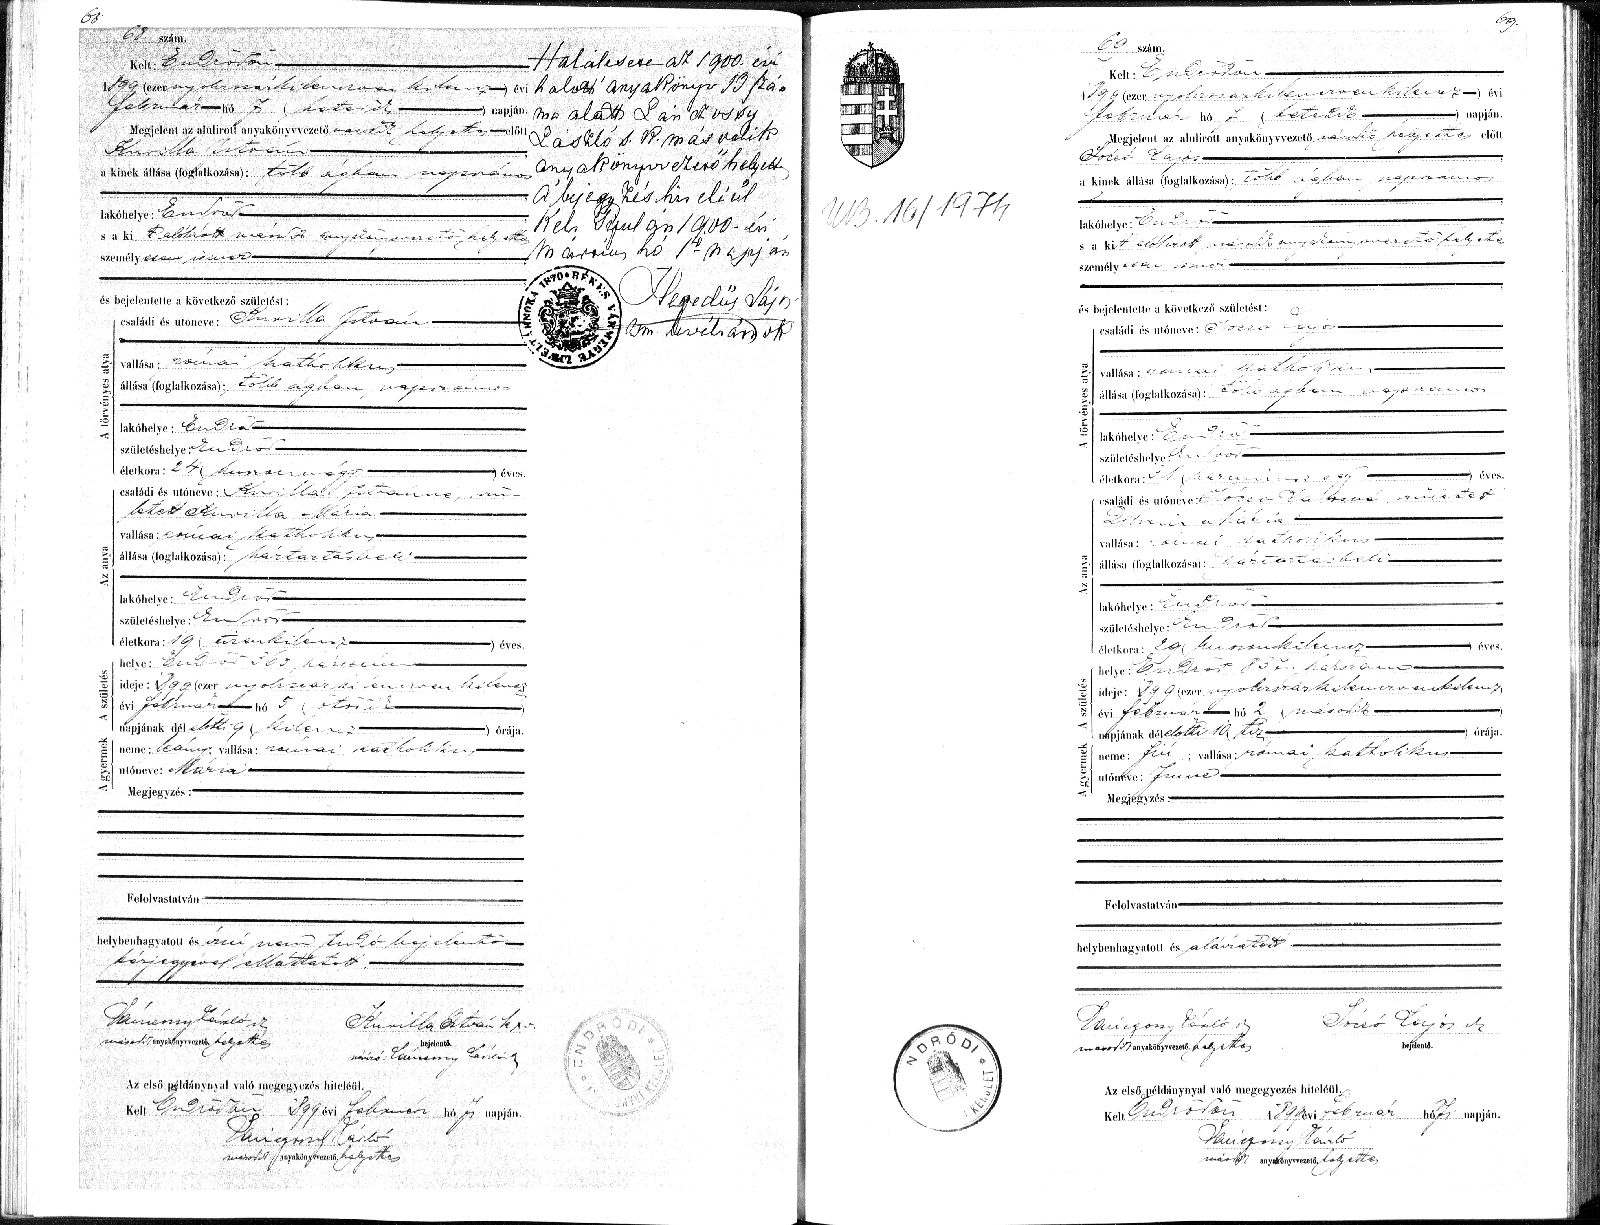 68
68 szám.
Kelt: Endrődön
1899 (ezer nyolcszázkilencvenkilenc) évi
február hó 7 (hetedik) napján.
Megjelent az alulirott anyakönyvvezető második helyettes előtt
Kurilla István
a kinek állása (foglalkozása): több ágban napszámos
lakóhelye: Endrőd
s a kit alulirott második anyakönyvvezető helyettes
személyesen ismer
és bejelentette a következő születést:
A törvényes atya
családi és utóneve: Kurilla István
vallása: római katholikus
állása (foglalkozása): több ágban napszámos
lakóhelye: Endrőd
születéshelye: Endrőd
életkora: 24 (huszonnégy) éves.
Az anya
családi és utóneve: Kurilla Istvánné, szü-
letett Kurilla Mária
vallása: római katholikus
állása (foglalkozása): háztartásbeli
lakóhelye: Endrőd
születéshelye: Endrőd
életkora: 19 (tizenkilenc) éves.
A születés
helye: Endrőd 563. házszám
ideje: 1899 (ezer nyolcszázkilencvenkilenc)
évi február hó 5 (ötödik)
napjának dél előtti 9 (kilenc) órája.
A gyermek
neme: leány; vallása: római katholikus
utóneve: Mária
Megjegyzés:
Felolvastatván
helybenhagyatott és írni nem tudó bejelentő
kézjegyével elláttatott.
második anyakönyvvezető helyettes
Kurilla István
bejelentő.
Az első példánynyal való megegyezés hiteléül.
Kelt Endrődön 1899 évi február hó 7 napján.
második anyakönyvvezető helyettes
Halálesete az 1900. évi
halotti anyakönyv 13 szá-
ma alatt
László s. k. második
anyakönyvvezető helyett
A bejegyzés hiteléül
Kelt Gyulán 1900. évi
március hó 1 napján
Hegedüs Lajos
ENDRŐDI
69.
69 szám.
Kelt: Endrődön
1899 (ezer nyolcszázkilencvenkilenc) évi
február hó 7 (hetedik) napján.
Megjelent az alulirott anyakönyvvezető második helyettes előtt
Soczó Lajos
a kinek állása (foglalkozása): több ágban napszámos
lakóhelye: Endrőd
s a kit alulirott második anyakönyvvezető helyettes
személyesen ismer
és bejelentette a következő születést:
A törvényes atya
családi és utóneve: Soczó Lajos
vallása: római katholikus
állása (foglalkozása): több ágban napszámos
lakóhelye: Endrőd
születéshelye: Endrőd
életkora: 31 (harminczegy) éves.
Az anya
családi és utóneve: Soczó Lajosné, született
vallása: római katholikus
állása (foglalkozása): háztartásbeli
lakóhelye: Endrőd
születéshelye: Endrőd
életkora: 29 (huszonkilenc) éves.
A születés
helye: Endrőd 837. házszám
ideje: 1899 (ezer nyolcszázkilencvenkilenc)
évi február hó 2 (második)
napjának dél előtti 10 (tíz) órája.
A gyermek
neme: fiú; vallása: római katholikus
utóneve: Imre
Megjegyzés:
Felolvastatván
helybenhagyatott és aláíratott
második anyakönyvvezető helyettes
Lajos
bejelentő.
Az első példánynyal való megegyezés hiteléül.
Kelt Endrődön 1899 évi február hó 7 napján.
második anyakönyvvezető helyettes
16/1974
NDRŐDI